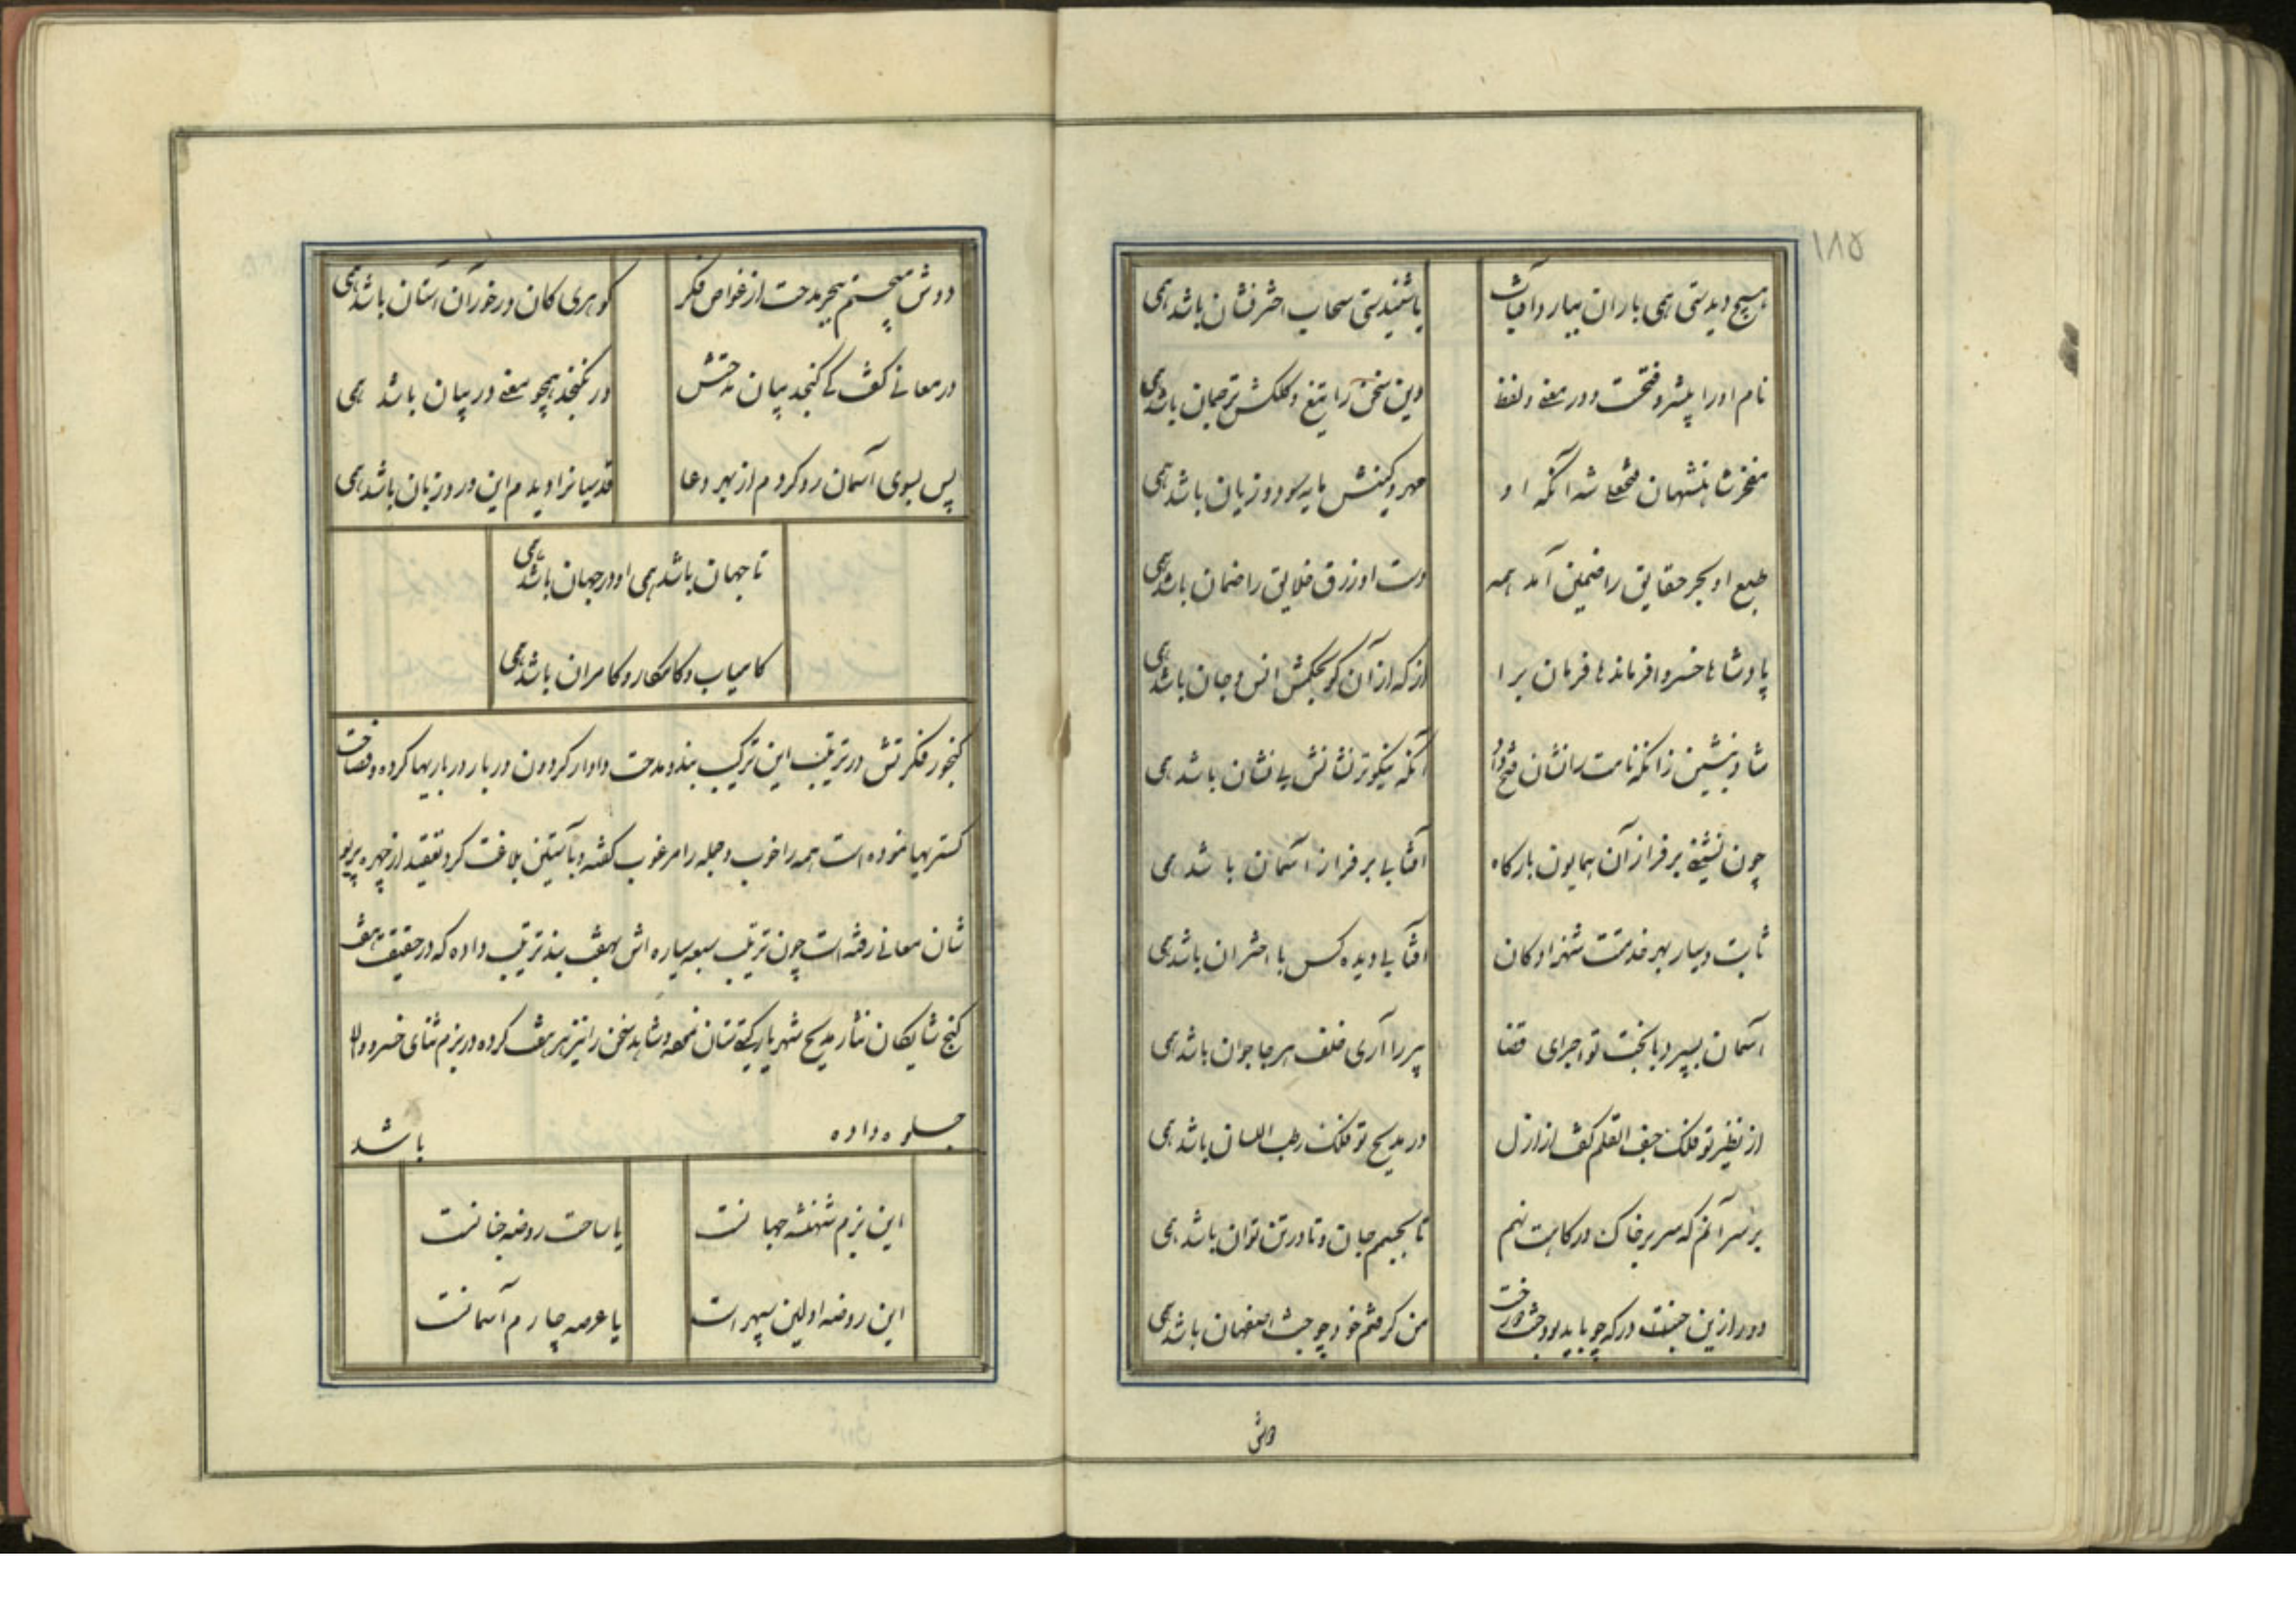 ۱۸۵
هیچ دیدستی همی باران ببارد آفتاب
یا شنیدستی سحاب اخترفشان باشد همی
نام او را پیشرو فتحست و در معنی و لفظ
وین سخن را تیغ و کلکش ترجمان باشد همی
مفخر شاهنشهان فتحعلی شه آنکه او
مهر و کینش مایه سود و زیان باشد همی
طبع او بحر حقایق را ضمین آمد همه
دست او رزق خلایق را ضمان باشد همی
پادشاها خسروا فرماندها فرمان برا
از که از آن کو بحکمش انس و جان باشد همی
شاد بنشین زانکه نامت را نشان فتح داد
آنکه نیکوتر نشانش بی نشان باشد همی
چون نشینی بر فراز آن همایون بارگاه
آفتابی بر فراز آسمان باشد همی
ثابت و سیار بهر خدمتت شهزادگان
آفتابی دیده کس با اختران باشد همی
آسمان بسپرد با بخت تو اجرای قضا
پیر را آری خلف هر جا جوان باشد همی
از نظیر تو فلک جف القلم گفت از ازل
در مدیح تو فلک رطب اللسان باشد همی
بر سر آنم که سر بر خاک درگاهت نهم
تا بجسمم جان و تا در تن توان باشد همی
دور ازین جنت درگه چو باید بود
من گرفتم خود چو جنت اصفهان باشد همی
دوش
دوش میجستم ببحر مدحت از غواص فکر
گوهری کان در خور آن آستان باشد همی
در معانی گفت کی گنجد بیان مدحتش
ور بگنجد همچو معنی در بیان باشد همی
پس بسوی آسمان رو کردم از بهر دعا
قدسیانرا دیدم این ورد زبان باشد همی
تا جهان باشد همی او در جهان باشد همی
کامیاب و کامکار و کامران باشد همی
گنجور فکرتش در ترتیب این ترکیب بند و مدحت داوار گردون دربار درباریها کرده و فصاحت
گستریها نموده است همه را خوب و جمله را مرغوب گفته و بآستین بلاغت گرد تعقید از چهره پریو
شان معانی رفته است چون ترتیب سبعه سیاره اش بهفت بند ترتیب داده که در حقیقت هفت
گنج شایگان نثار مدیح شهریار گیتی ستان نموده و شاهد سخن را نیز هر هفت کرده در بزم ثنای خسرو والا
جلوه داده باشد
این بزم شهنشه جهانست
یا ساحت روضه جنانست
این روضه اولین سپهر است
یا عرصه چارم آسمانست